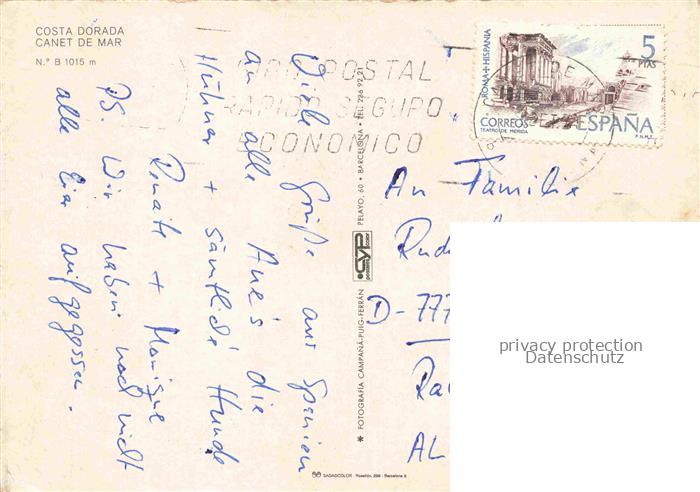 COSTA DORADA
CANET DE MAR
N.° B 1015 m
POSTAL
RAPIDO SEGURO
ECONOMICO
ROMA+HISPANIA
5
PTAS
CORREOS
ESPAÑA
TEATRO DE MERIDA
F.N.M.T.
Viele Grüße aus Spanien
an alle, die
Hühner + sämtliche Hunde
Renate + Monique
PS. Wir haben noch nicht
alle Eier aufgegessen.
✱ FOTOGRAFIA CAMPAÑÁ-PUIG-FERRÁN
CYP
PELAYO, 60 • BARCELONA • TEL. 236 92 21
An Familie
Rud
D-777
AL
privacy protection
Datenschutz
SADAGCOLOR - Rosellón, 298 - Barcelona 9